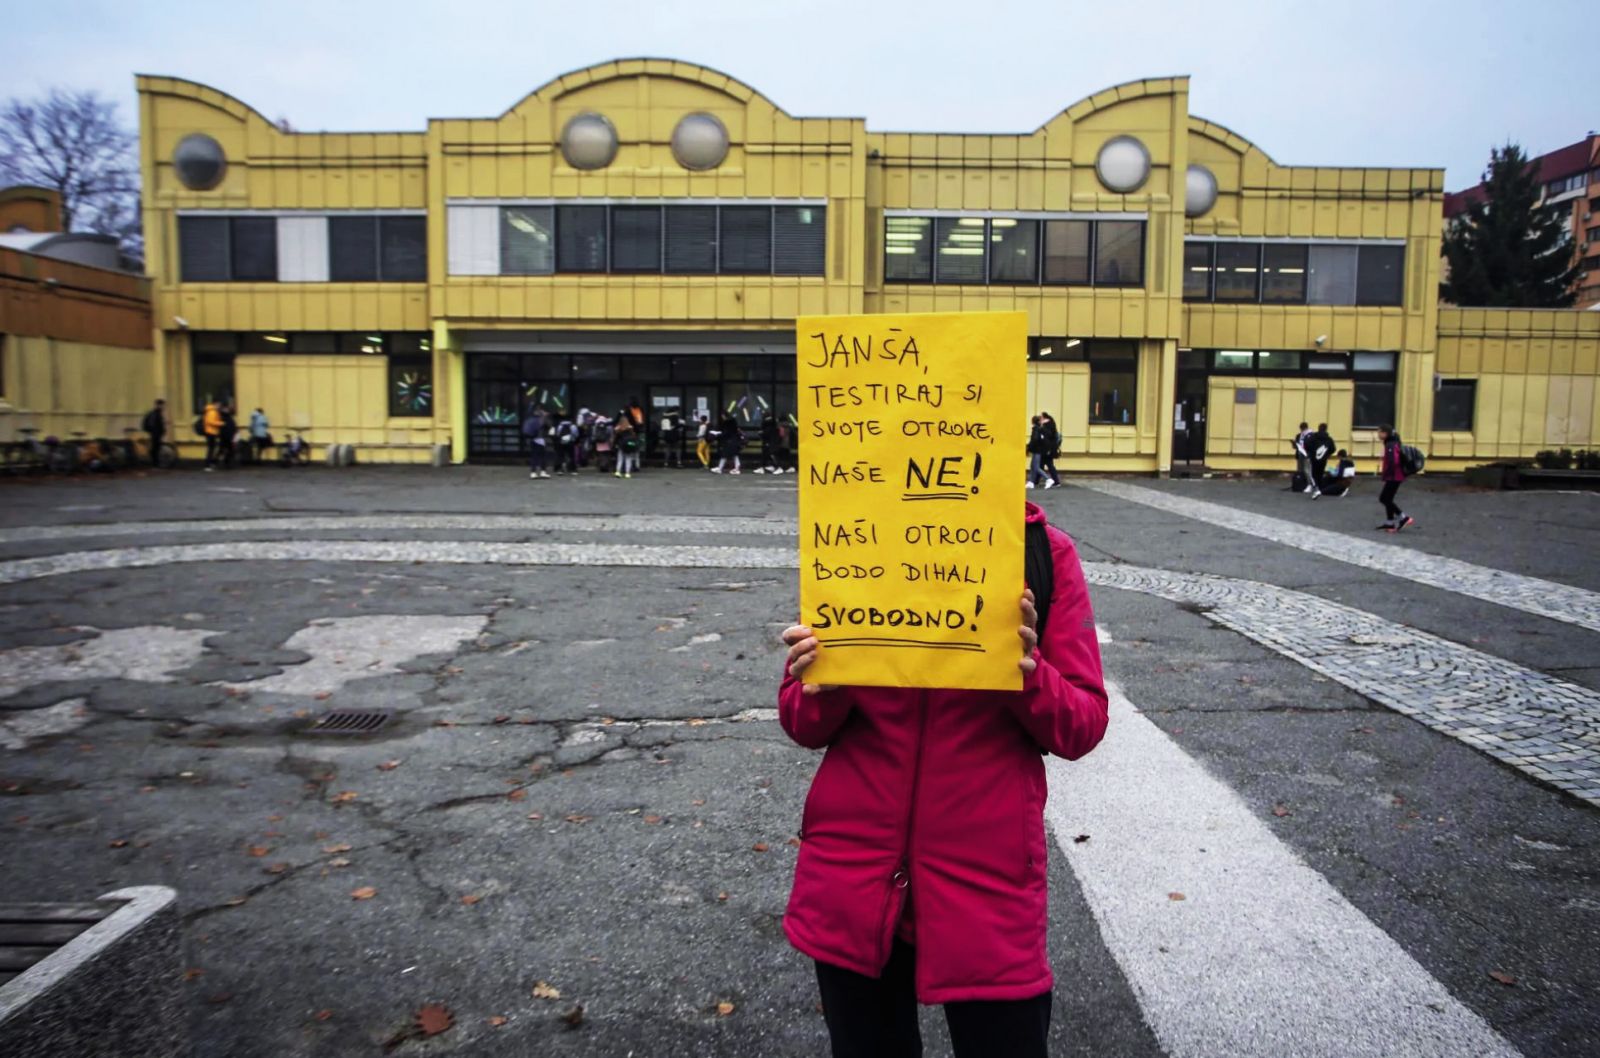 JANŠA,
TESTIRAJ SI
SVOJE OTROKE,
NAŠE NE!
NAŠI OTROCI
BODO DIHALI
SVOBODNO!